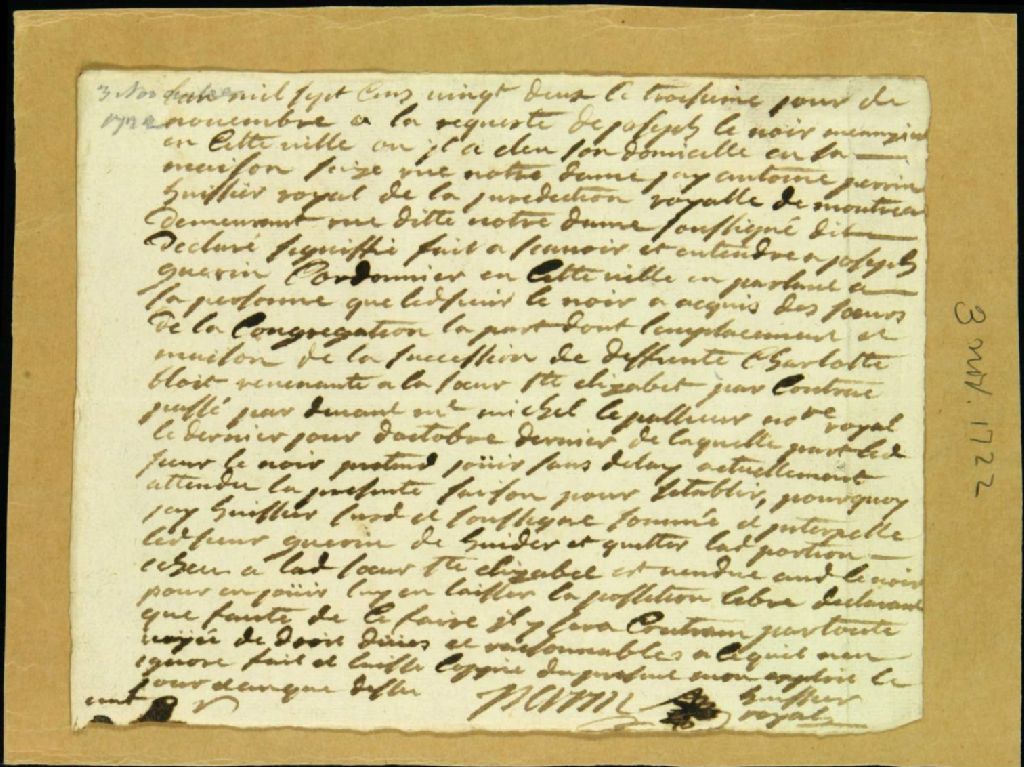 3 Novembre
1722
Lan mil sept Cens vingt deux le troisieme jour de
novembre a la requeste de joseph le noir menuizier
en Cette ville ou jl a eleu son domicille en sa
maison size rue notre dame jay antoine perrin
huissier royal de la juredection royalle de montreal
demeurant rue ditte notre dame soussigné dit
Declaré signiffié fait a scavoir et entendre a joseph
guerin Cordonnier en Cette ville en parlant a
sa personne que led sieur le noir a acquis des sœurs
de la Congregation la part dont lemplacement et
maison de la succession de deffunte Charlotte
blois revenante a la sœur Ste elizabet par Contrat
passé par devant mᵉ michel lepallieur noʳᵉ royal
le dernier jour doctobre dernier de laquelle part led
sieur le noir pretend joüir sans delay actuellement
attendu la presente saison pour setablir, pourquoy
jay huissier susd et soussigne sommé et jnterpellé
led sieur guerin de huider et quitter lad portion
echeu a lad sœur Ste elizabet et vendue aud le noir
pour en joüir luy en laisser la possession libre declarant
que faute de le faire jl y sera Contraint par toute
voyes de droit dues et raisonnables a lequil nen
jgnore fait et laissé Coppie du present mon exploit le
jour et an que dessus
perrin
huissier
royal
3 nov. 1722